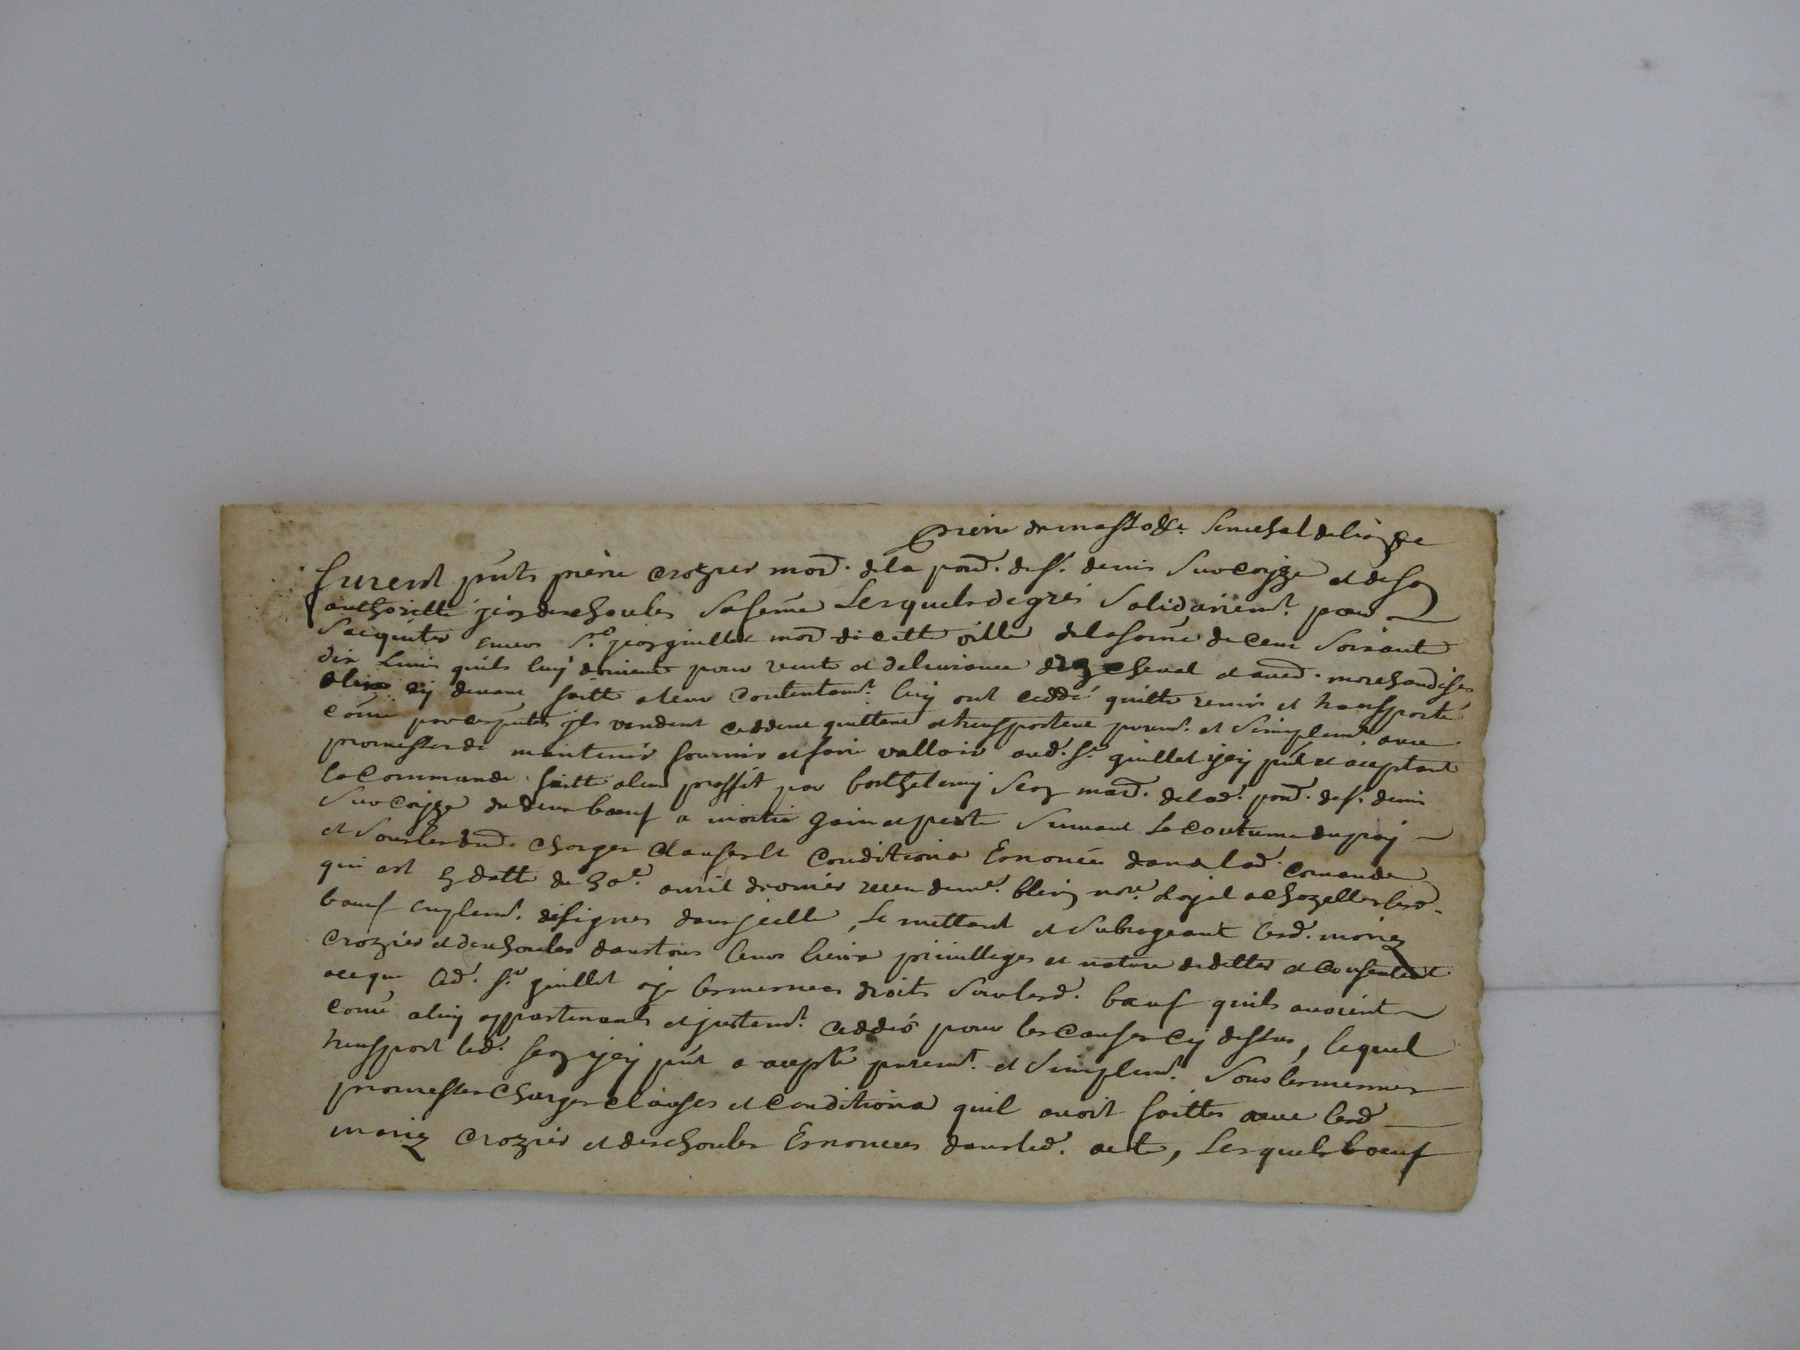 pierre de masso &c. senechal de lion &c
furent pnts pierre crozier mard. de la parr. de st. denis sur coyze et de son
authoritté deschoules sa feme Lesquels de gréé solidairemt. pour
sacquiter envers Sr. guillet mard de cette ville de la some de cent soixante
dix Livres quils luy doivent pour vente et delivrance d'un cheval et aud. marchandises
a eux cy devant faitte a leur contentemt. luy ont ceddé quitte remis et transporté
come par ces pntes ils vendent ceddent quittent et transportent puremt. et simplemt. avec
promesse de maintenir fournir et faire valloir aud. Sr. guillet icy pnt et aceptant
la Commande faitte a leur proffit par barthelemy Seon mard. de lad. parr. de st. denis
sur coyze de deux bœuf a moitié gain et perte suivant la coutume du pay
et sous les charges clauses et conditions Ennoncée dans lad. comande
qui est en datte du 30e. avril dernier receu de me. blein nore. Royal a chazelles lesd.
bœuf emplemt. désignés dans icelle, Le mettant et subrogeant lesd. mariez
crozier et deschoules dans tous leurs lieux privilleges et nature de dettes et consentent
ace que led. Sr. guillet aye les mesmes droits sur lesd. bœuf quils avoient
come a luy appartenants et justemt. ceddés pour les causes cy dessus, lequel
transport led. seon icy pnt a acepté puremt. et simplemt. sous les mesmes
promesses charges clauses et conditions quil avoit faittes avec lesd
mariez crozier et deschoules Ennoncées dans led. acte, Lesquels bœuf